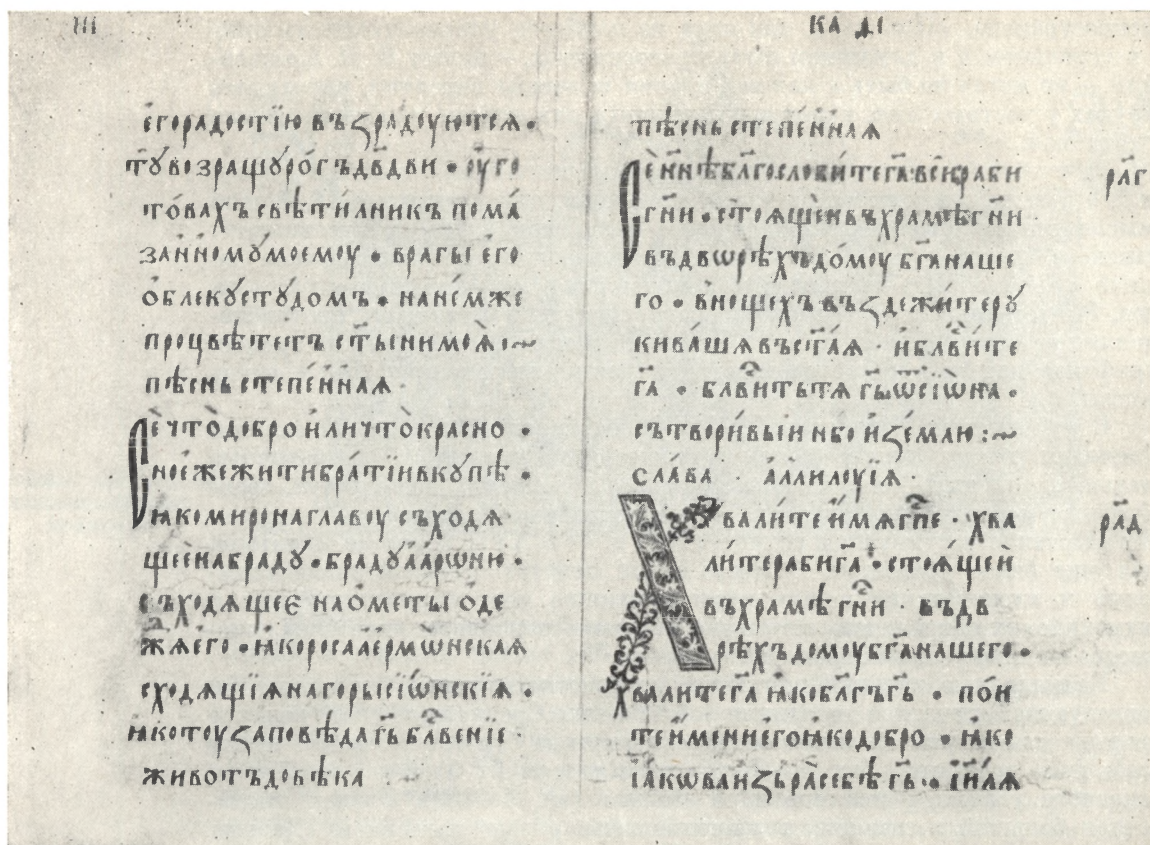 КА ДІ
е҆горадостїю въꙁрадꙋютсѧ •
тꙋвозращꙋро́гъдв҃дви • ѹ҆гѡ
то́вахъ свѣти́лникъ пома́
за́нномꙋмоемоу • враги е҆го
ѡ҆блекꙋстꙋдомъ • нане́мже
процвѣтетъ ст҃ынимоѧ̀ :~
пѣснь степе́ннаѧ ·
Сѐ что̀добро и҆личто̀красно •
ное́жежитибра́тїивкꙋпѣ •
ꙗ҆комиронаглавоу съходѧ
щеенабрадꙋ • брадꙋа҆а́рѡню •
съходѧщеє нао҆меты о҆де
жѧ̀его • ꙗ҆коросаа҆ермѡ́нскаѧ
сходѧщїѧнагорысїѡ́нскїѧ •
ꙗ҆котоуꙁаповѣда гь҃ блв҃енїе ·
живо́тъдовѣка
пѣсньстепе́ннаѧ
Сѐ нн҃ѣблг҃ослови́тегаⷭ҇всѝраби
гн҃и • стоѧ́щеивъхрамѣгн҃и
въдвѡрѣхъдо́моу бг҃анаше
го • внощехъ въꙁдежи́терꙋ
кива́шѧвъст҃аѧ · и҆блв҃и́те
га҃ • блв҃итьтѧ гь҃ѿсїѡ́на •
сътвори́выи нб҃о и҆ꙁемлю :~
сла́ва · а҆ллилоу́їѧ ·
Хвали́те и҆́мѧгн҃е · хва
ли́терабига҃ • стоѧ́щеи
въхрамѣ гн҃и · въдв
рѣхъдомоубг҃анашего •
хвали́тега҃ ꙗ҆коблг҃ъгь҃ • пои́
теи҆́мениегоꙗ҆кодобро • ꙗ҆ко
їа҆кѡваиꙁьрасебѣ гь҃ • і҆и҃лѧ
раг
рад